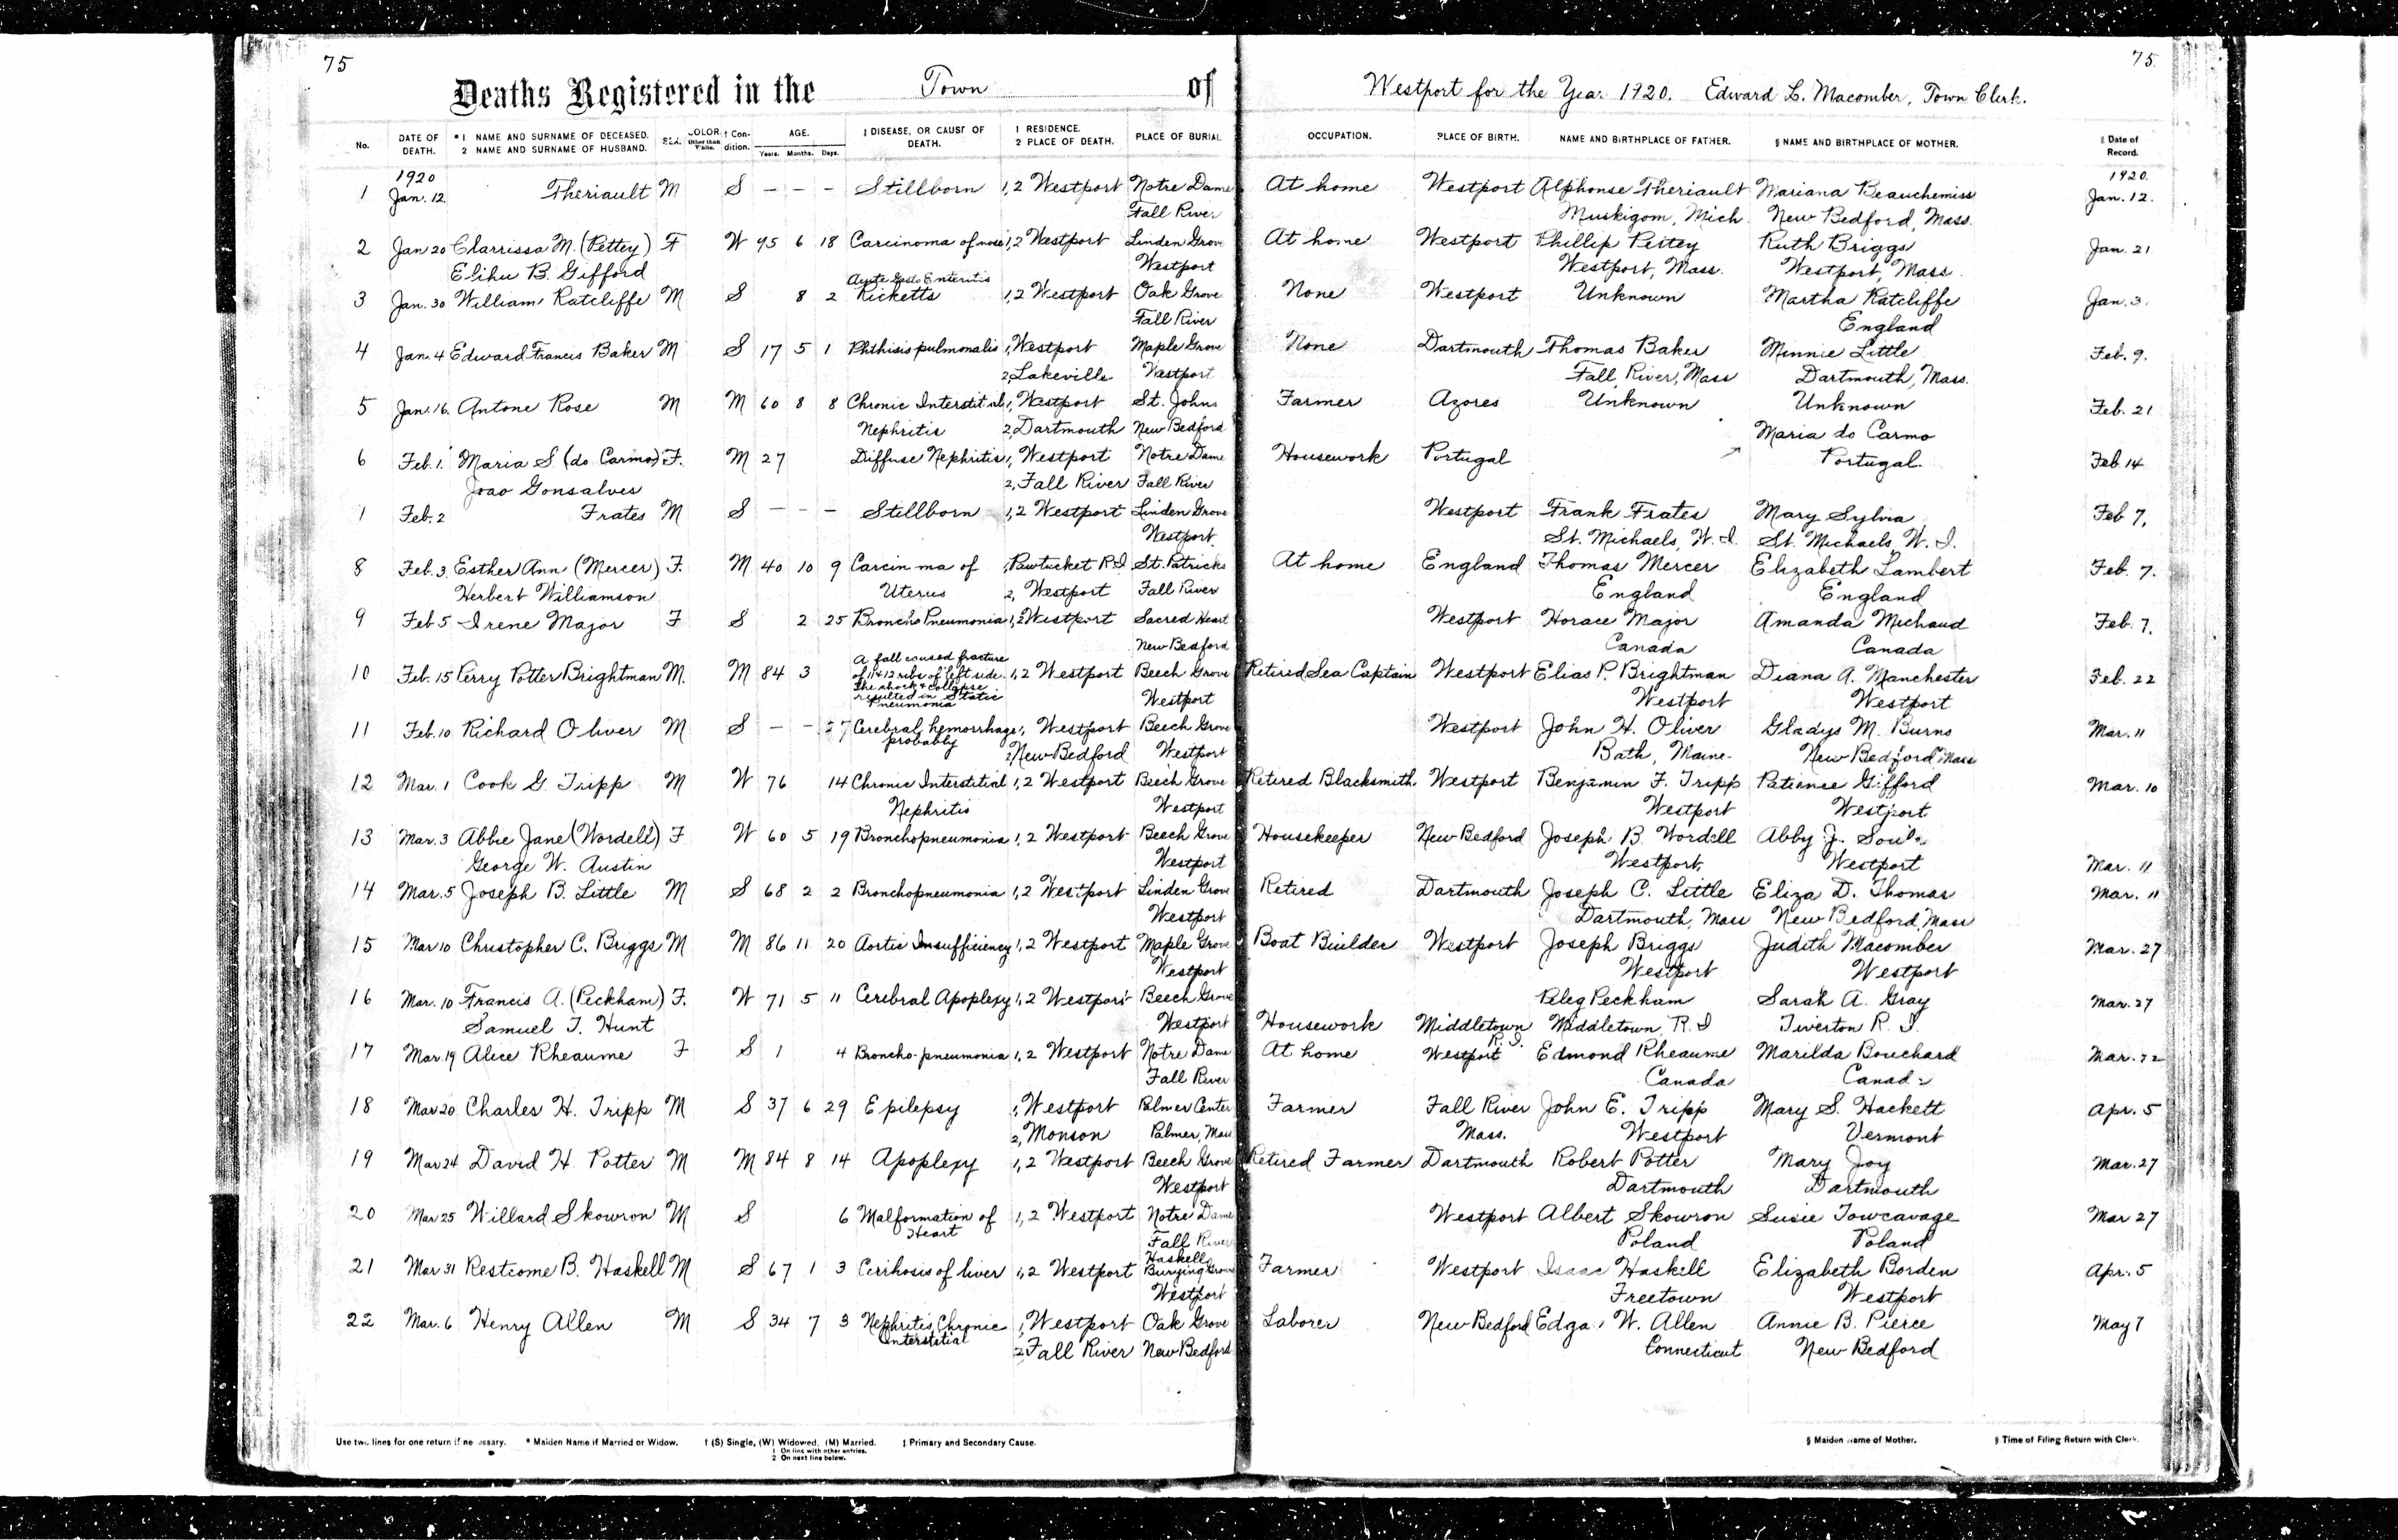 75
75.
Deaths Registered in the Town of Westport for the Year 1920. Edward L. Macomber, Town Clerk.
No. DATE OF DEATH. *1 NAME AND SURNAME OF DECEASED. 2 NAME AND SURNAME OF HUSBAND. SEX. COLOR Other than White. † Condition. AGE. Years. Months. Days. ‡ DISEASE, OR CAUSE OF DEATH. 1 RESIDENCE. 2 PLACE OF DEATH. PLACE OF BURIAL OCCUPATION. PLACE OF BIRTH. NAME AND BIRTHPLACE OF FATHER. § NAME AND BIRTHPLACE OF MOTHER. ‖ Date of Record.
1920 1920.
1 Jan. 12. Theriault M S – – – Stillborn 1,2 Westport Notre Dame At home Westport Alphonse Theriault Mariana Beauchemiss Jan. 12.
Fall River Muskigom, Mich New Bedford, Mass.
2 Jan 20 Clarrissa M. (Pettey) F W 95 6 18 Carcinoma of nose 1,2 Westport Linden Grove At home Westport Phillip Pettey Ruth Briggs Jan. 21
Elihu B. Gifford Westport Westport, Mass. Westport, Mass.
Enteritis
3 Jan. 30 William Ratcliffe M S 8 2 Ricketts 1,2 Westport Oak Grove None Westport Unknown Martha Ratcliffe Jan. 3.
Fall River England
4 Jan. 4 Edward Francis Baker M S 17 5 1 Phthisis pulmonalis 1, Westport Maple Grove None Dartmouth Thomas Baker Minnie Little Feb. 9.
2, Lakeville Westport Fall River, Mass Dartmouth, Mass.
5 Jan. 16. Antone Rose M M 60 8 8 Chronic Interstitial 1, Westport St. Johns Farmer Azores Unknown Unknown Feb. 21
Nephritis 2, Dartmouth New Bedford
Maria do Carmo
6 Feb. 1. Maria S. (do Carmo) F. M 27 Diffuse Nephritis 1, Westport Notre Dame Housework Portugal Portugal. Feb 14
Joao Gonsalves 2, Fall River Fall River
1 Feb. 2 Frates M S – – – Stillborn 1,2 Westport Linden Grove Westport Frank Frates Mary Sylvia Feb 7,
Westport. St. Michaels, W. I. St. Michaels, W. I.
8 Feb. 3. Esther Ann (Mercer) F. M 40 10 9 Carcin ma of 1, Pawtucket R.I St. Patricks At home England Thomas Mercer Elizabeth Lambert Feb. 7.
Herbert Williamson Uterus 2, Westport Fall River England England
9 Feb 5 Irene Major F S 2 25 Broncho Pneumonia 1,2 Westport Sacred Heart Westport Horace Major Amanda Michaud Feb. 7.
New Bedford Canada Canada
A fall caused fracture
10 Feb. 15 Perry Potter Brightman M. M 84 3 of 11 & 12 ribs of left side. 1,2 Westport Beech Grove Retired Sea Captain Westport Elias P. Brightman Diana A. Manchester Feb. 22
The shock & collapse
resulted in Static Westport Westport Westport
Pneumonia
11 Feb. 10 Richard Oliver M S – – 27 Cerebral hemorrhage 1, Westport Beech Grove Westport John H. Oliver Gladys M. Burns Mar. 11
probably 2 New Bedford Westport Bath, Maine. New Bedford Mass
12 Mar. 1 Cook G. Tripp M W 76 14 Chronic Interstitial 1,2 Westport Beech Grove Retired Blacksmith. Westport Benjamin F. Tripp Patience Gifford Mar. 10
Nephritis Westport Westport Westport
13 Mar. 3 Abbie Jane (Wordell) F W 60 5 19 Bronchopneumonia 1,2 Westport Beech Grove Housekeeper New Bedford Joseph B. Wordell Abby J. Soule
George W. Austin Westport Westport, Westport Mar. 11
14 Mar. 5 Joseph B. Little M S 68 2 2 Bronchopneumonia 1,2 Westport Linden Grove Retired Dartmouth Joseph C. Little Eliza D. Thomas Mar. 11
Westport Dartmouth, Mass New Bedford, Mass
15 Mar 10 Christopher C. Briggs M M 86 11 20 Aortic Insufficiency 1,2 Westport Maple Grove Boat Builder Westport Joseph Briggs Judith Macomber Mar. 27
Westport Westport Westport
16 Mar. 10 Francis A. (Peckham) F. W 71 5 11 Cerebral Apoplexy 1,2 Westport Beech Grove Peleg Peckham Sarah A. Gray Mar. 27
Samuel T. Hunt Westport Housework Middletown R. I. Middletown, R. I Tiverton R. I.
17 Mar. 19 Alice Rheaume F S 1 4 Broncho-pneumonia 1,2 Westport Notre Dame At home Westport Edmond Rheaume Marilda Bouchard Mar. 22
Fall River Canada Canada
18 Mar 20 Charles H. Tripp M S 37 6 29 Epilepsy 1, Westport Palmer Center Farmer Fall River John E. Tripp Mary S. Hackett Apr. 5
2, Monson Palmer, Mass Mass. Westport Vermont
19 Mar 24 David H. Potter M M 84 8 14 Apoplexy 1,2 Westport Beech Grove Retired Farmer Dartmouth Robert Potter Mary Joy Mar. 27
Westport Dartmouth Dartmouth
20 Mar 25 Willard Skowron M S 6 Malformation of 1,2 Westport Notre Dame Westport Albert Skowron Susie Towcavage Mar 27
Heart Fall River Poland Poland
Haskell
21 Mar 31 Restcome B. Haskell M S 67 1 3 Cirrhosis of liver 1,2 Westport Burying Ground Farmer Westport Isaac Haskell Elizabeth Borden Apr. 5
Westport Freetown Westport
22 Mar. 6 Henry Allen M S 34 7 3 Nephritis, Chronic 1, Westport Oak Grove Laborer New Bedford Edgar W. Allen Annie B. Pierce May 7
Interstitial 2 Fall River New Bedford Connecticut New Bedford
Use two lines for one return if necessary. * Maiden Name if Married or Widow. † (S) Single, (W) Widowed, (M) Married. ‡ Primary and Secondary Cause. § Maiden Name of Mother. ‖ Time of Filing Return with Clerk.
1 On line with other entries.
2 On next line below.